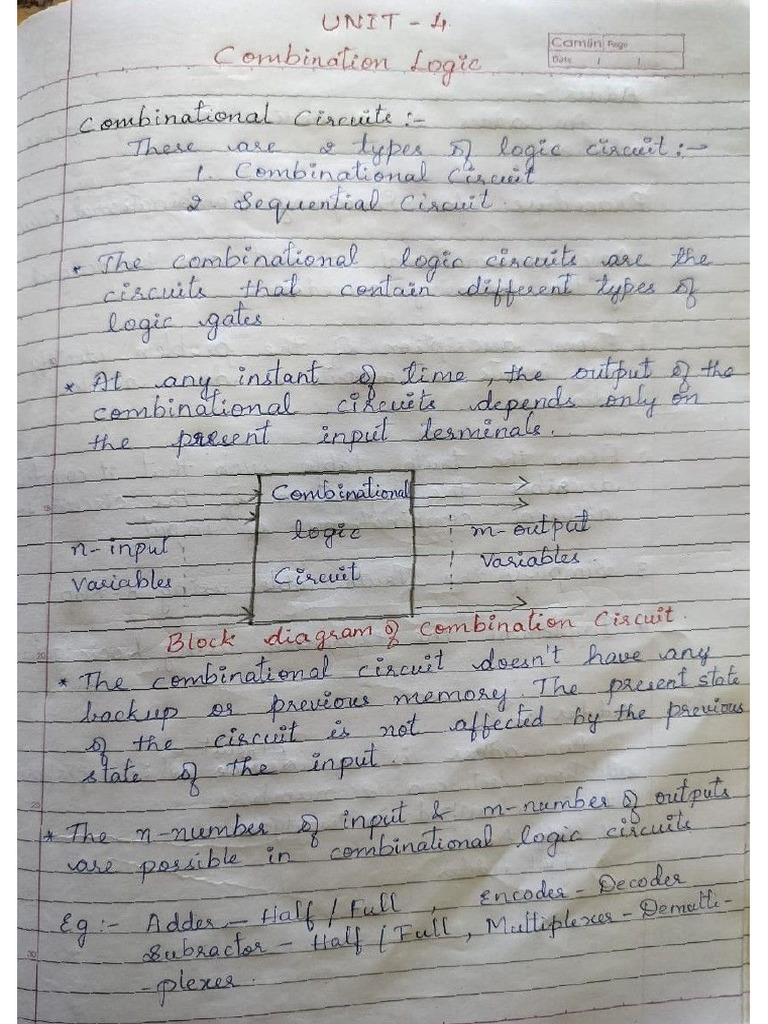 UNIT - 4.
Combination Logic
Camlin Page
Date / /
Combinational Circuits :-
There are 2 types of logic circuit :-
1. Combinational Circuit
2. Sequential Circuit.
* The combinational logic circuits are the
circuits that contain different types of
logic gates.
* At any instant of time, the output of the
combinational circuits depends only on
the present input terminals.
Combinational
logic
Circuit
n-input
variables
m-output
variables.
Block diagram of Combination Circuit.
* The combinational circuit doesn't have any
backup or previous memory. The present state
of the circuit is not affected by the previous
state of the input.
* The n-number of input & m-number of outputs
are possible in combinational logic circuits
Eg :- Adder - Half / Full , Encoder - Decoder
Subractor - Half / Full , Multiplexer - Demulti-
-plexer.